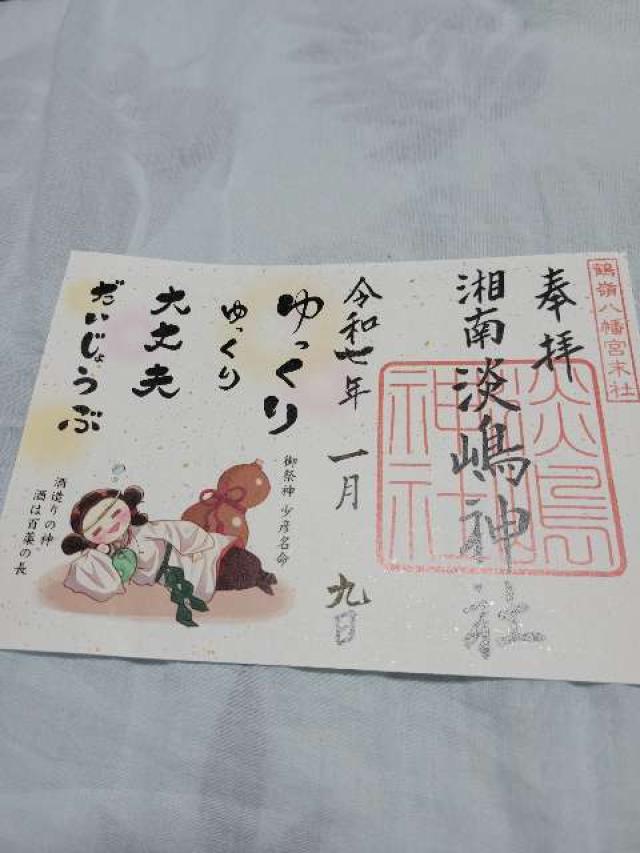 鶴嶺八幡宮末社
奉拝
湘南淡嶋神社
淡島神社
令和七年 一月 九日
ゆっくり
ゆっくり
大丈夫
だいじょうぶ
御祭神 少彦名命
酒造りの神
酒は百薬の長